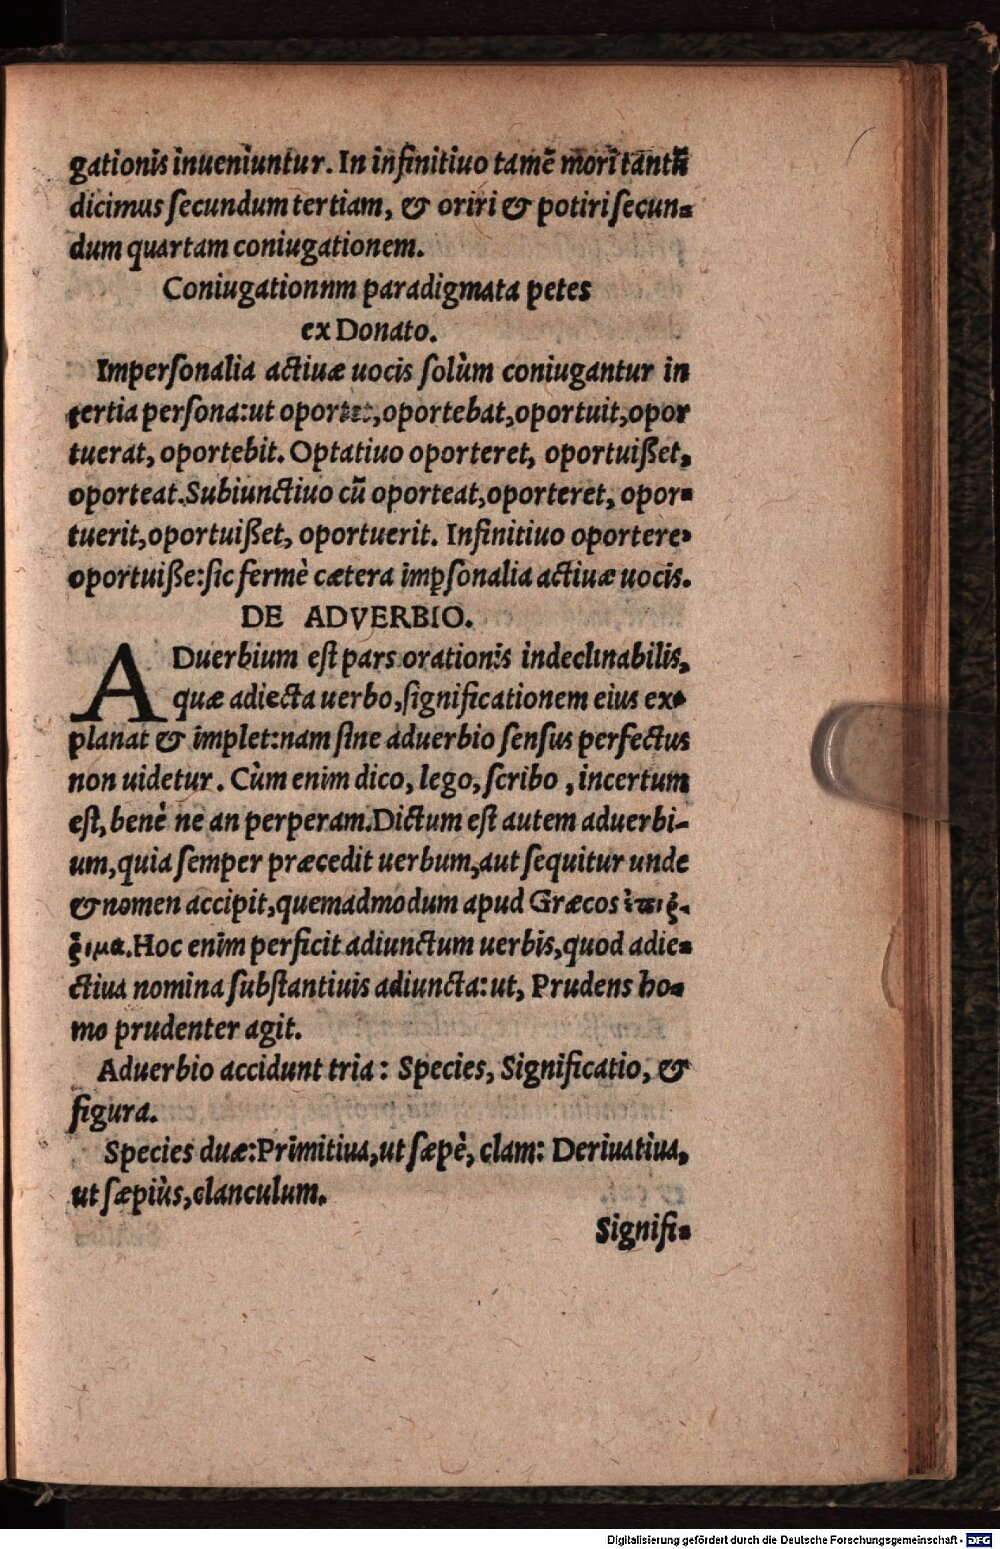 gationis inueniuntur. In infinitiuo tamē mori tantū
dicimus ſecundum tertiam, & oriri & potiri ſecun-
dum quartam coniugationem.
Coniugationnm paradigmata petes
ex Donato.
Imperſonalia actiuæ uocis ſolùm coniugantur in
tertia perſona: ut oportet, oportebat, oportuit, opor
tuerat, oportebit. Optatiuo oporteret, oportuißet,
oporteat. Subiunctiuo cū oporteat, oporteret, opor-
tuerit, oportuißet, oportuerit. Infinitiuo oportere,
oportuiße: ſic fermè cætera imꝑſonalia actiuæ uocis.
DE ADVERBIO.
ADuerbium eſt pars orationis indeclinabilis,
quæ adiecta uerbo, ſignificationem eius ex-
planat & implet: nam ſine aduerbio ſenſus perfectus
non uidetur. Cùm enim dico, lego, ſcribo, incertum
eſt, benè ne an perperam. Dictum eſt autem aduerbi-
um, quia ſemper præcedit uerbum, aut ſequitur unde
& nomen accipit, quemadmodum apud Græcos
Hoc enim perficit adiunctum uerbis, quod adie-
ctiua nomina ſubſtantiuis adiuncta: ut, Prudens ho-
mo prudenter agit.
Aduerbio accidunt tria: Species, Significatio, &
figura.
Species duæ: Primitiua, ut ſæpè, clam: Deriuatiua,
ut ſæpiùs, clanculum.
Signifi-
Digitalisierung gefördert durch die Deutsche Forschungsgemeinschaft - DFG